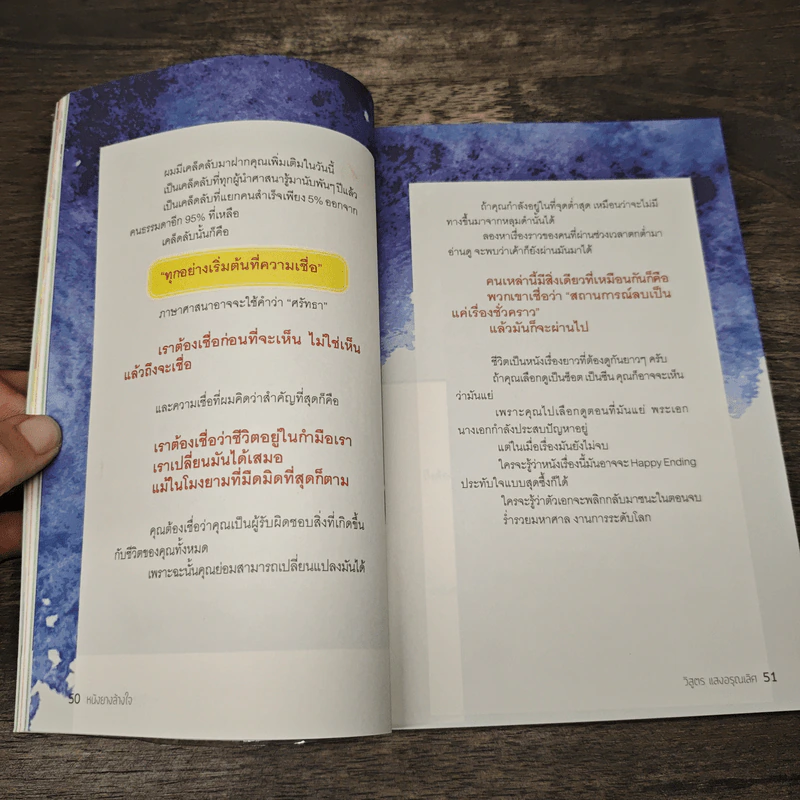 ผมมีเคล็ดลับมาฝากคุณเพิ่มเติมในวันนี้
เป็นเคล็ดลับที่ทุกผู้นำศาสนารู้มานับพันๆ ปีแล้ว
เป็นเคล็ดลับที่แยกคนสำเร็จเพียง 5% ออกจาก
คนธรรมดาอีก 95% ที่เหลือ
เคล็ดลับนั้นก็คือ
"ทุกอย่างเริ่มต้นที่ความเชื่อ"
ภาษาศาสนาอาจจะใช้คำว่า "ศรัทธา"
เราต้องเชื่อก่อนที่จะเห็น ไม่ใช่เห็น
แล้วถึงจะเชื่อ
และความเชื่อที่ผมคิดว่าสำคัญที่สุดก็คือ
เราต้องเชื่อว่าชีวิตอยู่ในกำมือเรา
เราเปลี่ยนมันได้เสมอ
แม้ในโมงยามที่มืดมิดที่สุดก็ตาม
คุณต้องเชื่อว่าคุณเป็นผู้รับผิดชอบสิ่งที่เกิดขึ้น
กับชีวิตของคุณทั้งหมด
เพราะฉะนั้นคุณย่อมสามารถเปลี่ยนแปลงมันได้
50 หนังยางล้างใจ
ถ้าคุณกำลังอยู่ในที่จุดต่ำสุด เหมือนว่าจะไม่มี
ทางขึ้นมาจากหลุมดำนั้นได้
ลองหาเรื่องราวของคนที่ผ่านช่วงเวลาตกต่ำมา
อ่านดู จะพบว่าเค้าก็ยังผ่านมันมาได้
คนเหล่านี้มีสิ่งเดียวที่เหมือนกันก็คือ
พวกเขาเชื่อว่า "สถานการณ์ลบเป็น
แค่เรื่องชั่วคราว"
แล้วมันก็จะผ่านไป
ชีวิตเป็นหนังเรื่องยาวที่ต้องดูกันยาวๆ ครับ
ถ้าคุณเลือกดูเป็นช็อต เป็นซีน คุณก็อาจจะเห็น
ว่ามันแย่
เพราะคุณไปเลือกดูตอนที่มันแย่ พระเอก
นางเอกกำลังประสบปัญหาอยู่
แต่ในเมื่อเรื่องมันยังไม่จบ
ใครจะรู้ว่าหนังเรื่องนี้มันอาจจะ Happy Ending
ประทับใจแบบสุดซึ้งก็ได้
ใครจะรู้ว่าตัวเอกจะพลิกกลับมาชนะในตอนจบ
ร่ำรวยมหาศาล งานการระดับโลก
วิสูตร แสงอรุณเลิศ 51